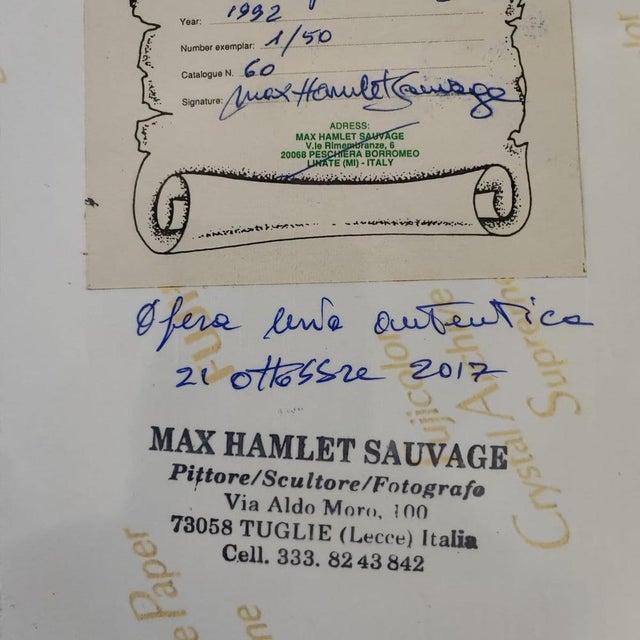 Year: 1992
Number exemplar: 1/50
Catalogue N. 60
Signature: Max Hamlet Sauvage
ADRESS:
MAX HAMLET SAUVAGE
V.le Rimembranze, 6
20068 PESCHIERA BORROMEO
LINATE (MI) - ITALY
Opera unica autentica
21 ottobre 2017
MAX HAMLET SAUVAGE
Pittore/Scultore/Fotografo
Via Aldo Moro, 100
73058 TUGLIE (Lecce) Italia
Cell. 333. 82 43 842
Fujicolor
Crystal Archive
Supreme
Paper